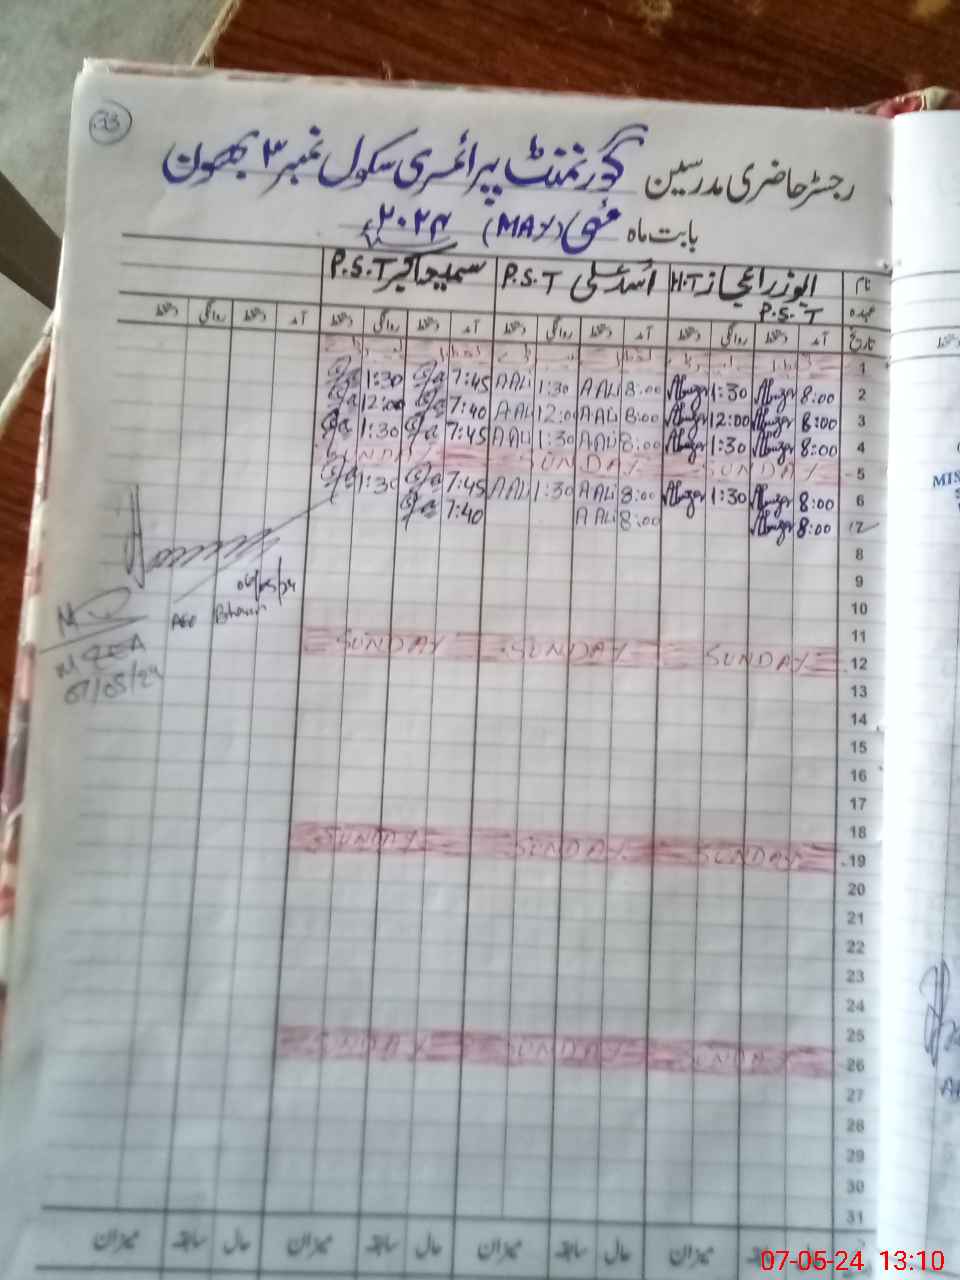 33
رجسٹر حاضری مدرسین گورنمنٹ پرائمری سکول نمبر ۳ بھون
بابت ماہ مئی (MAY) ۲۰۲۴ء
نام ابوزر اعجاز H.T اسد علی P.S.T P.S.T
عہدہ P.S.T
تاریخ آمد دستخط روانگی دستخط آمد دستخط روانگی دستخط آمد دستخط روانگی دستخط آمد دستخط روانگی دستخط
1
2 8:00 Abuzar 1:30 Abuzar 8:00 A ALi 1:30 A ALi 7:45 1:30
3 8:00 Abuzar 12:00 Abuzar 8:00 A ALi 12:00 A ALi 7:40 12:00
4 8:00 Abuzar 1:30 Abuzar 8:00 A ALi 1:30 A ALi 7:45 1:30
5 SUNDAY SUNDAY SUNDAY
6 8:00 Abuzar 1:30 Abuzar 8:00 A ALi 1:30 A ALi 7:45 1:30
7 8:00 Abuzar 8:00 A ALi 7:40
8
9
10
11
12 SUNDAY SUNDAY SUNDAY
13
14
15
16
17
18
19 SUNDAY SUNDAY SUNDAY
20
21
22
23
24
25
26 SUNDAY SUNDAY SUNDAY
27
28
29
30
31
حال سابقہ میزان حال سابقہ میزان حال سابقہ میزان
06/05/24
AEO Bhoun
MEA
07/05/24
MIS
07-05-24 13:10